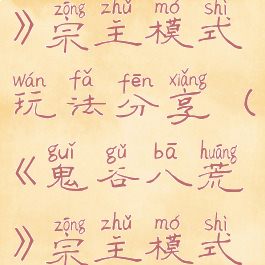 zōng zhǔ mó shì
》宗主模式
wán fǎ fēn xiǎng
玩法分享（
guǐ gǔ bā huāng
《鬼谷八荒
zōng zhǔ mó shì
》宗主模式